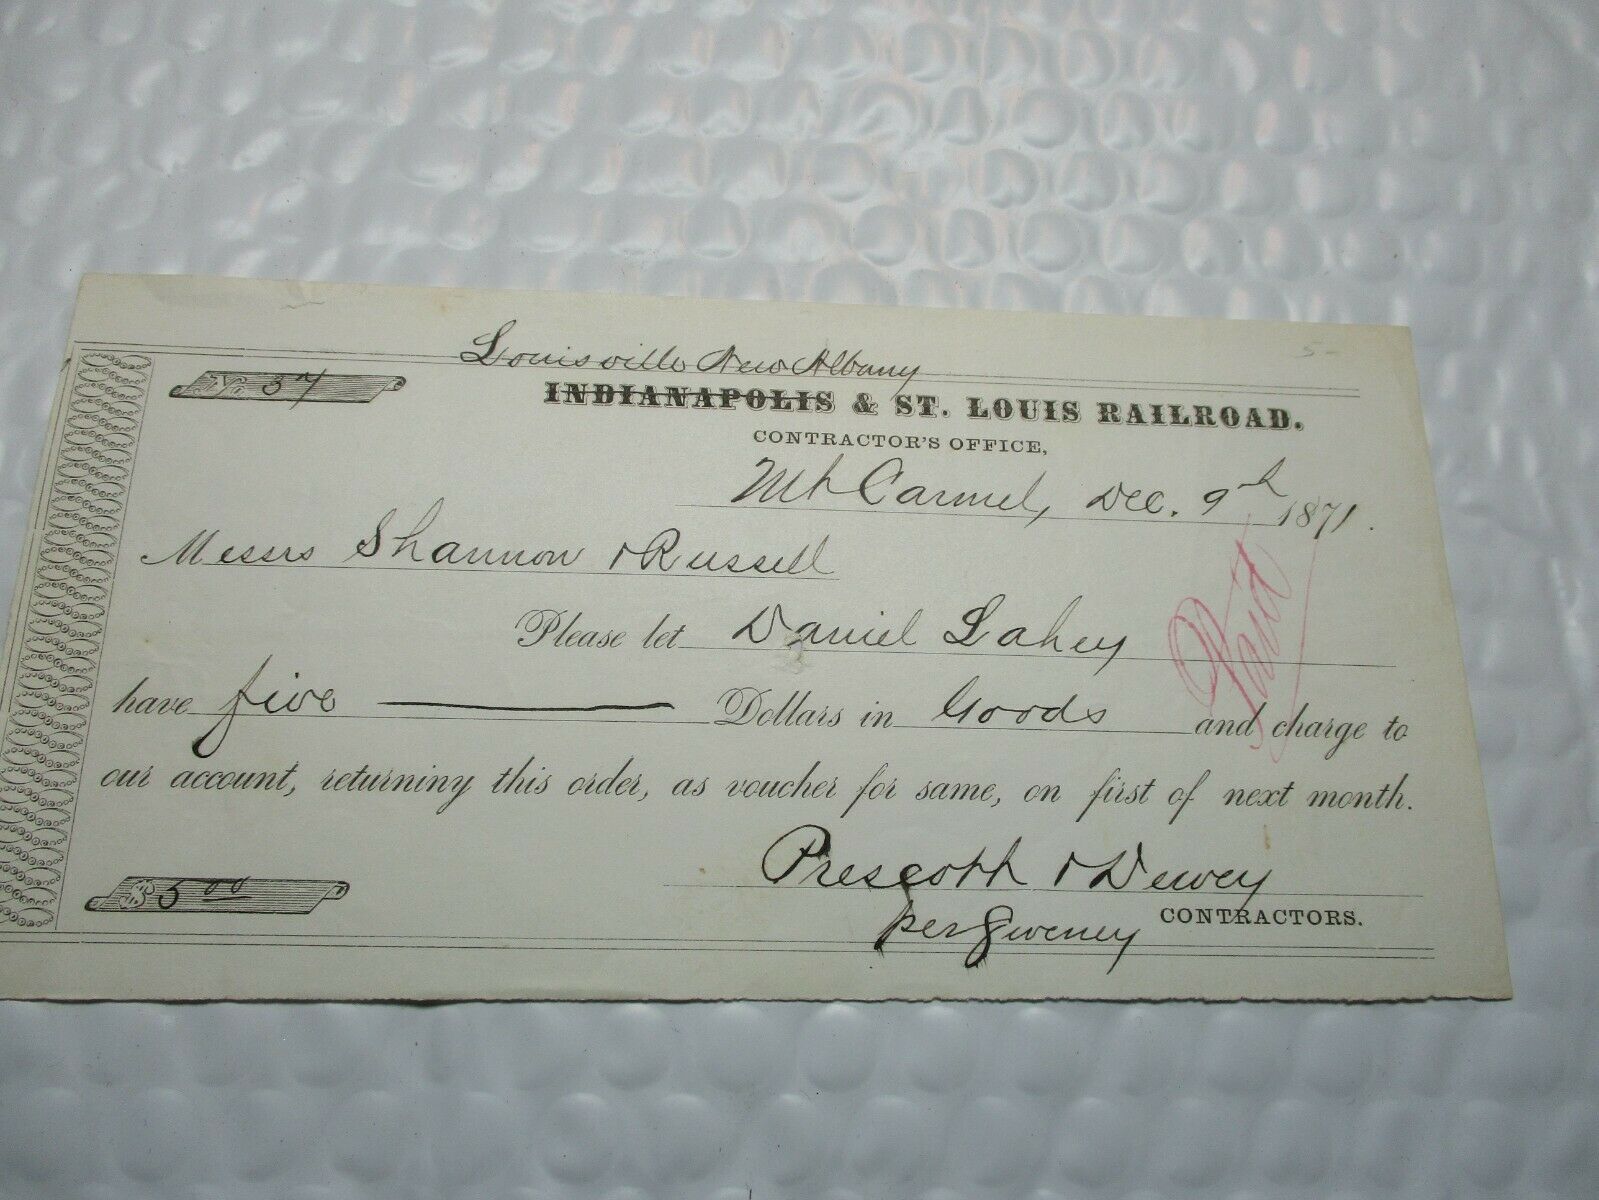 5-
Louisville New Albany
No. 37
INDIANAPOLIS & ST. LOUIS RAILROAD.
CONTRACTOR'S OFFICE,
Mt Carmel, Dec. 9th 1871.
Messrs Shannon & Russell
Please let Daniel Lahey
have five Dollars in Goods and charge to
our account, returning this order, as voucher for same, on first of next month.
Paid
$5 00
Prescott & Dewey
CONTRACTORS.
per